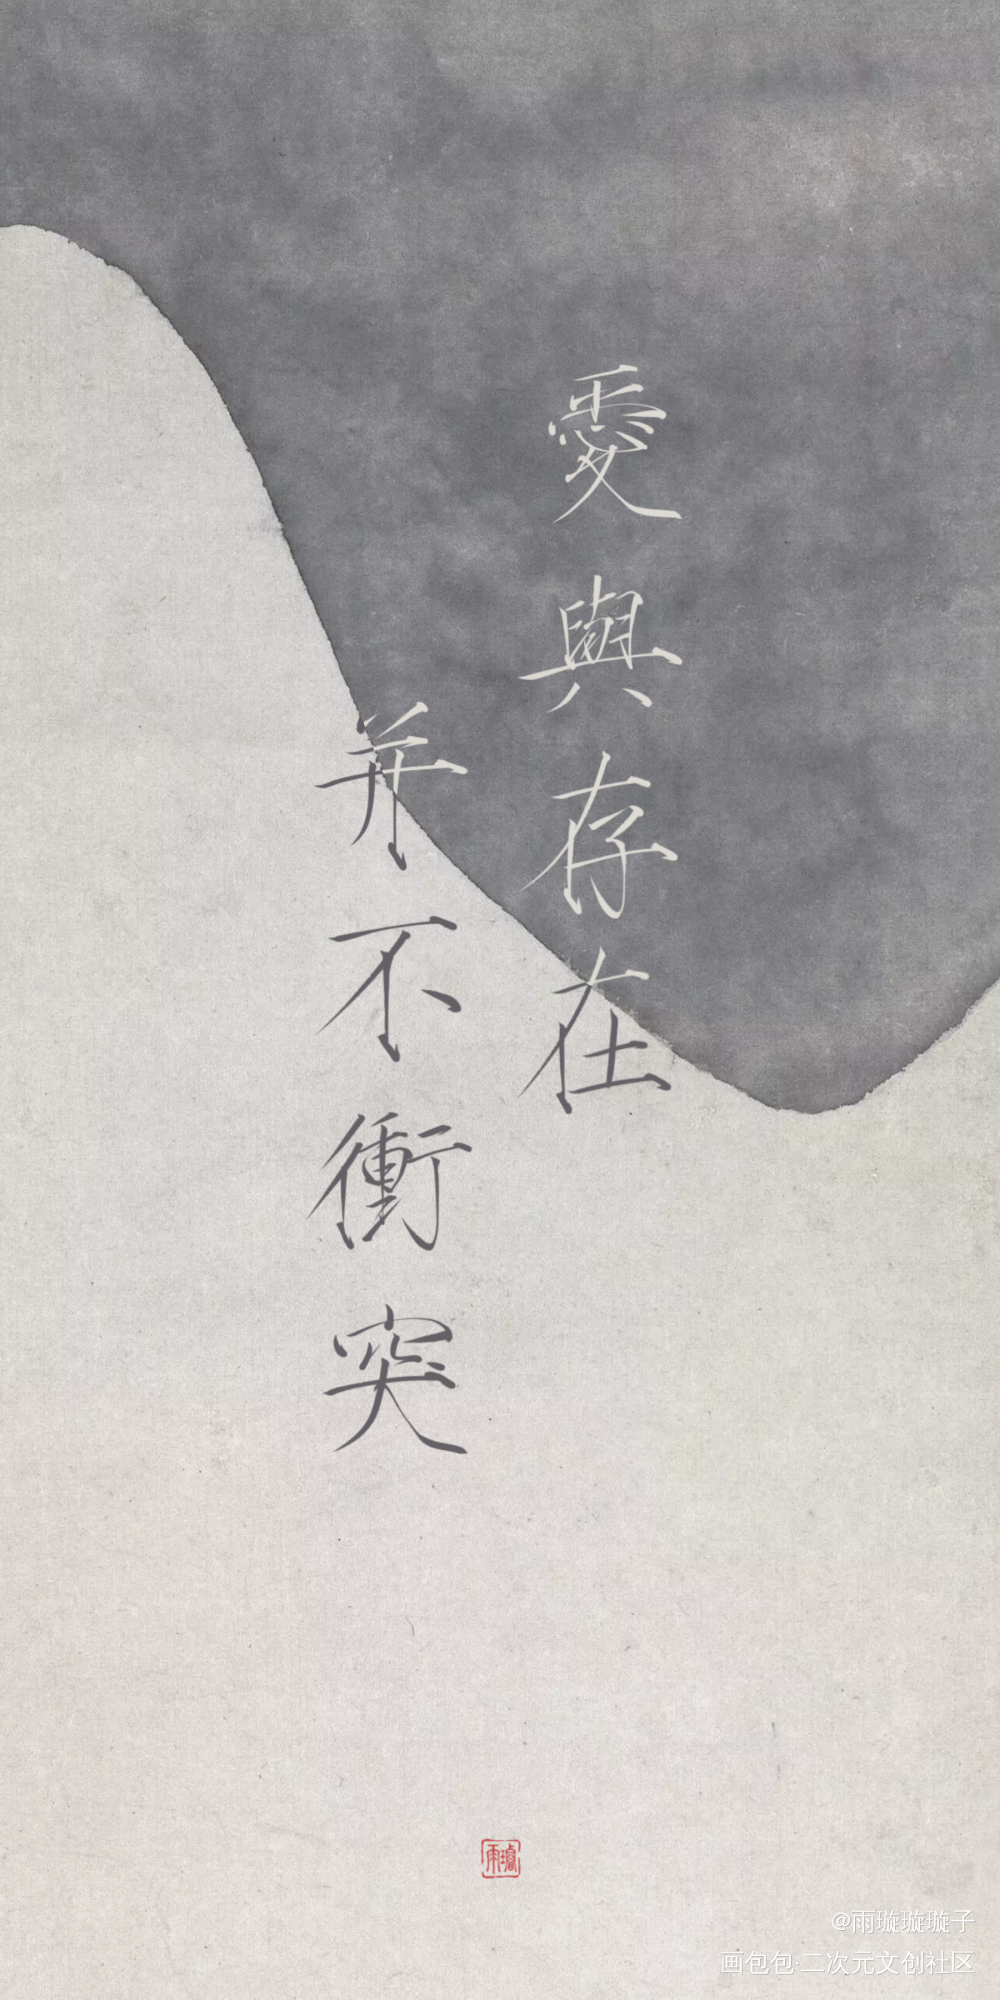 愛與存在
并不衝突
雨璇
@雨璇璇璇子
画包包·二次元文创社区